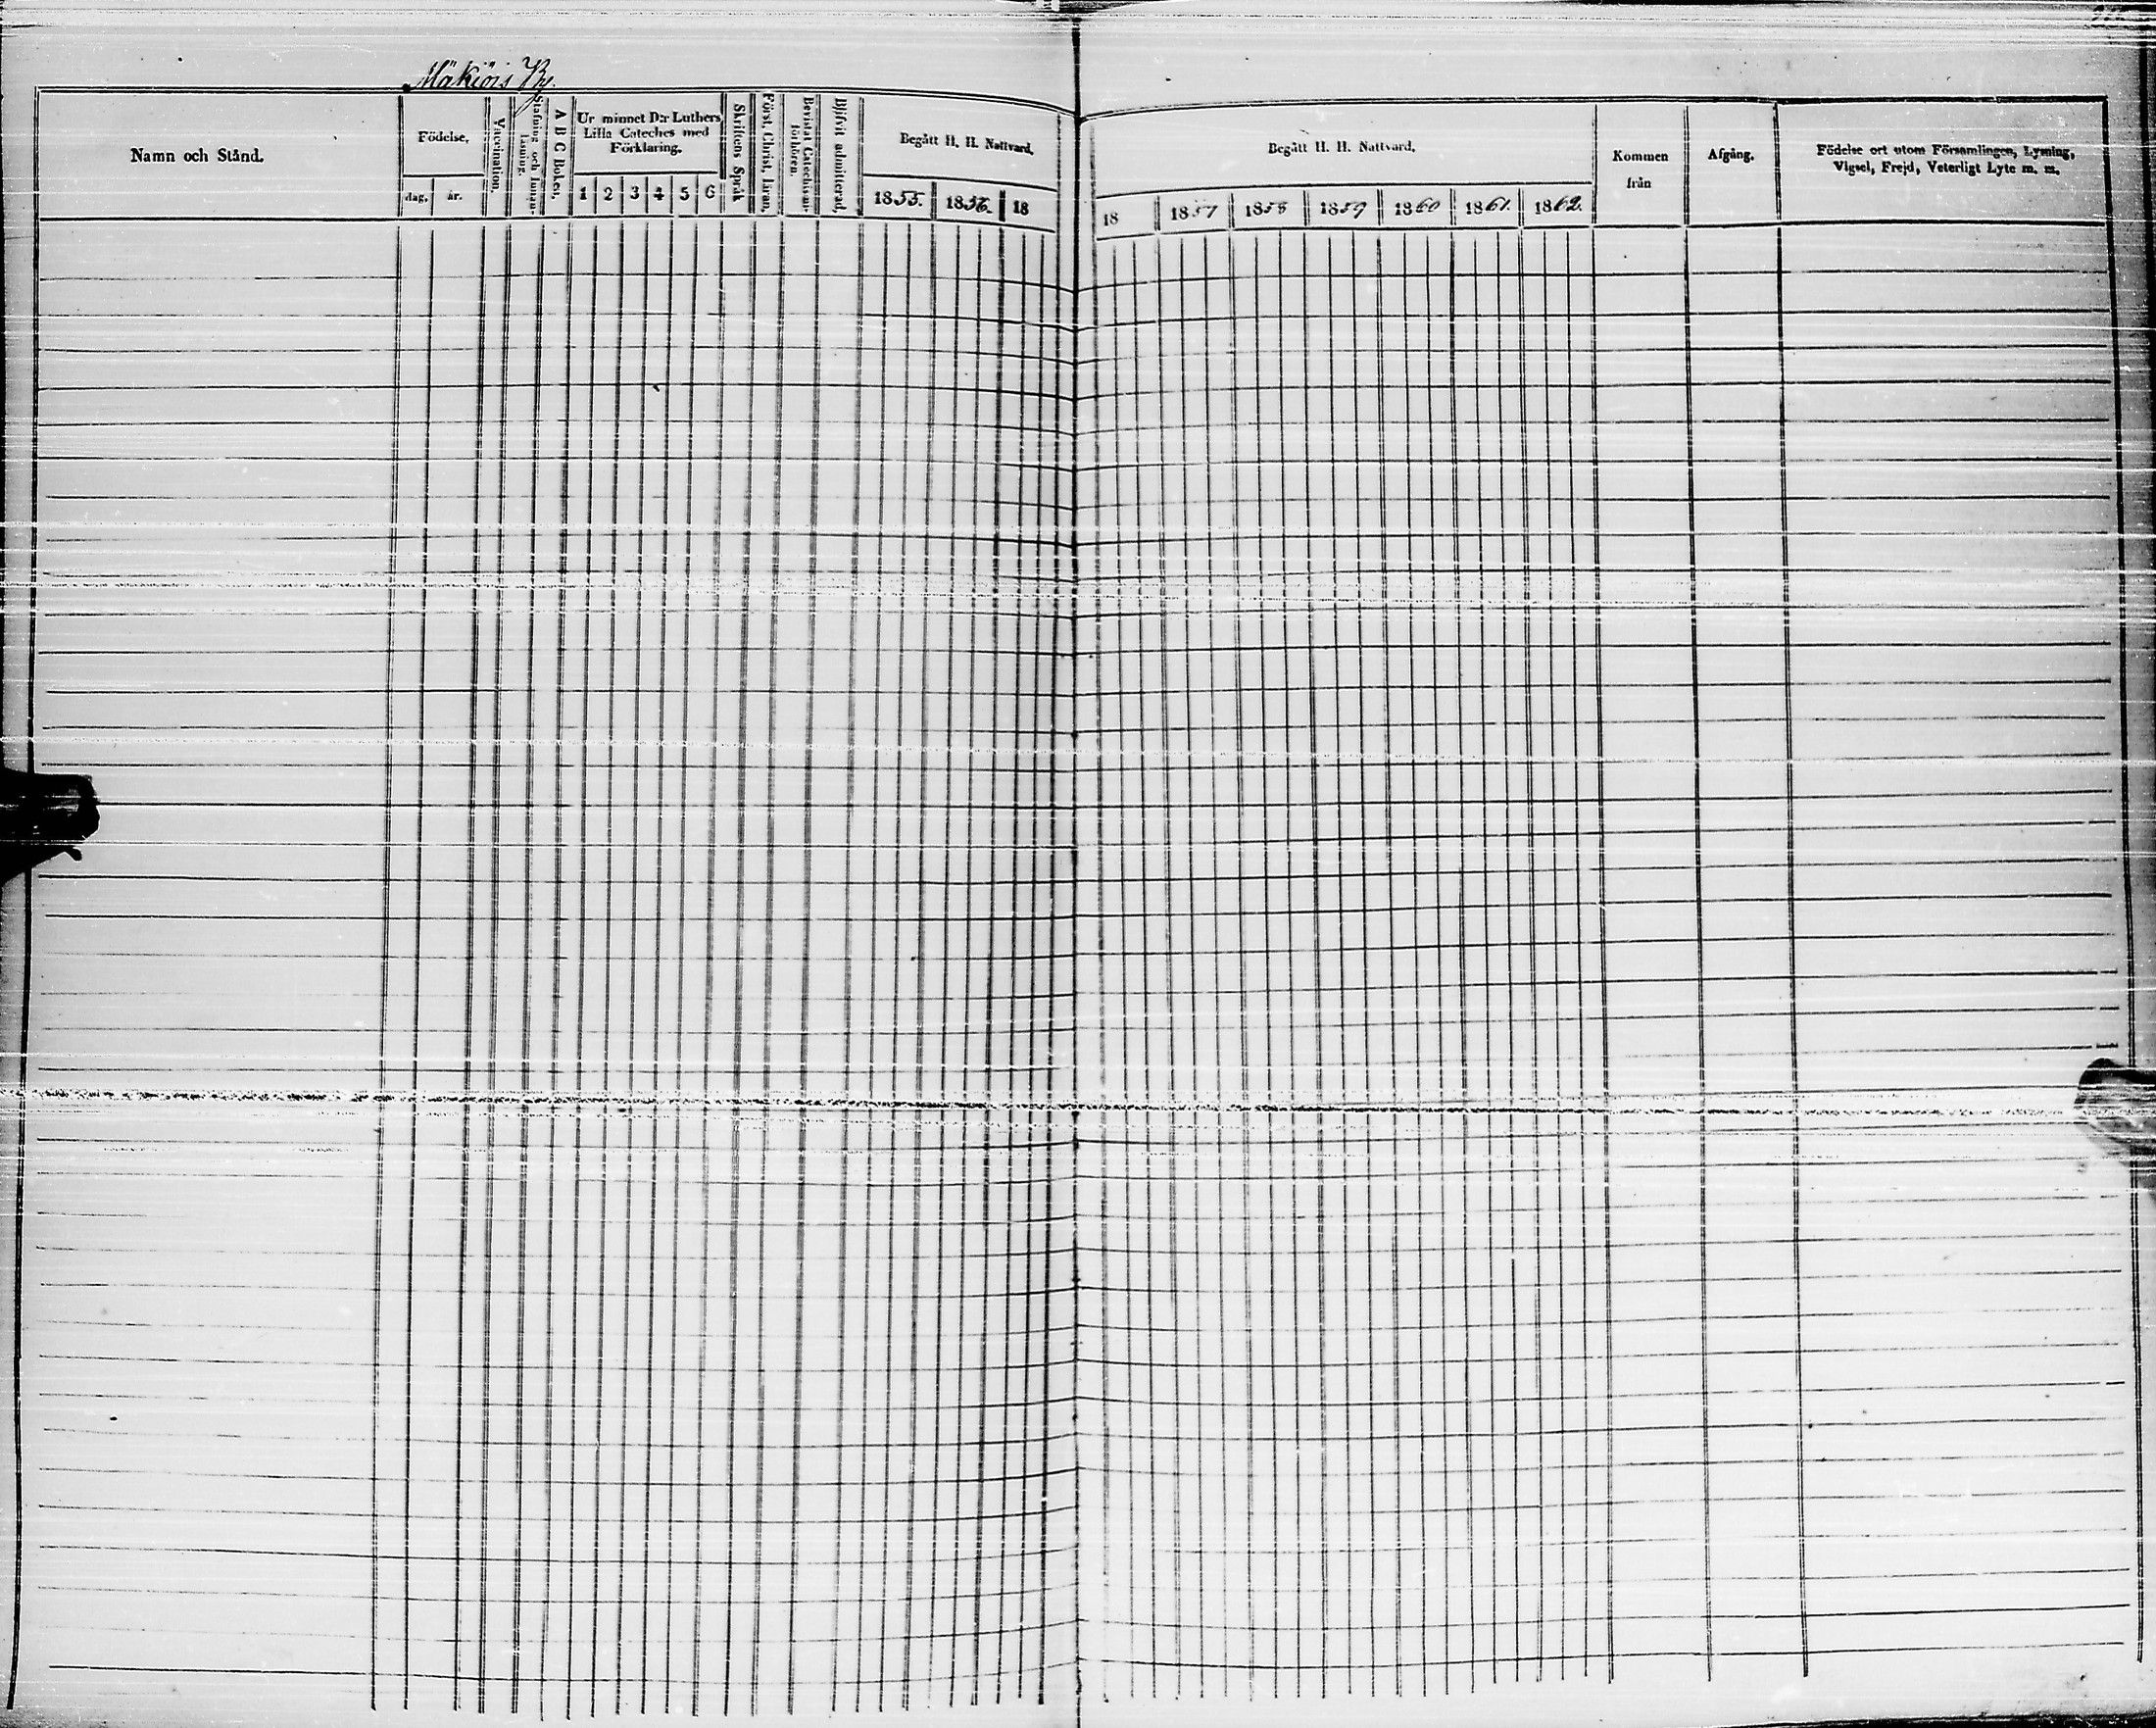 Mäkiöis By.
Namn och Stånd.
Födelse,
dag,
år.
Vaccination.
Stafning och Innan-
läsning.
A B C Boken,
Ur minnet D:r Luthers
Lilla Cateches med
Förklaring.
1 2 3 4 5 6
Skriftens Språk
Först. Christ. läran,
Bevistat Catechismi-
förhören.
Blifvit admitterad,
Begått H. H. Nattvard.
1855. 1856. 18
Begått H. H. Nattvard.
18 1857 1858 1859 1860 1861. 1862.
Kommen
från
Afgång.
Födelse ort utom Församlingen, Lysning,
Vigsel, Frejd, Veterligt Lyte m. m.